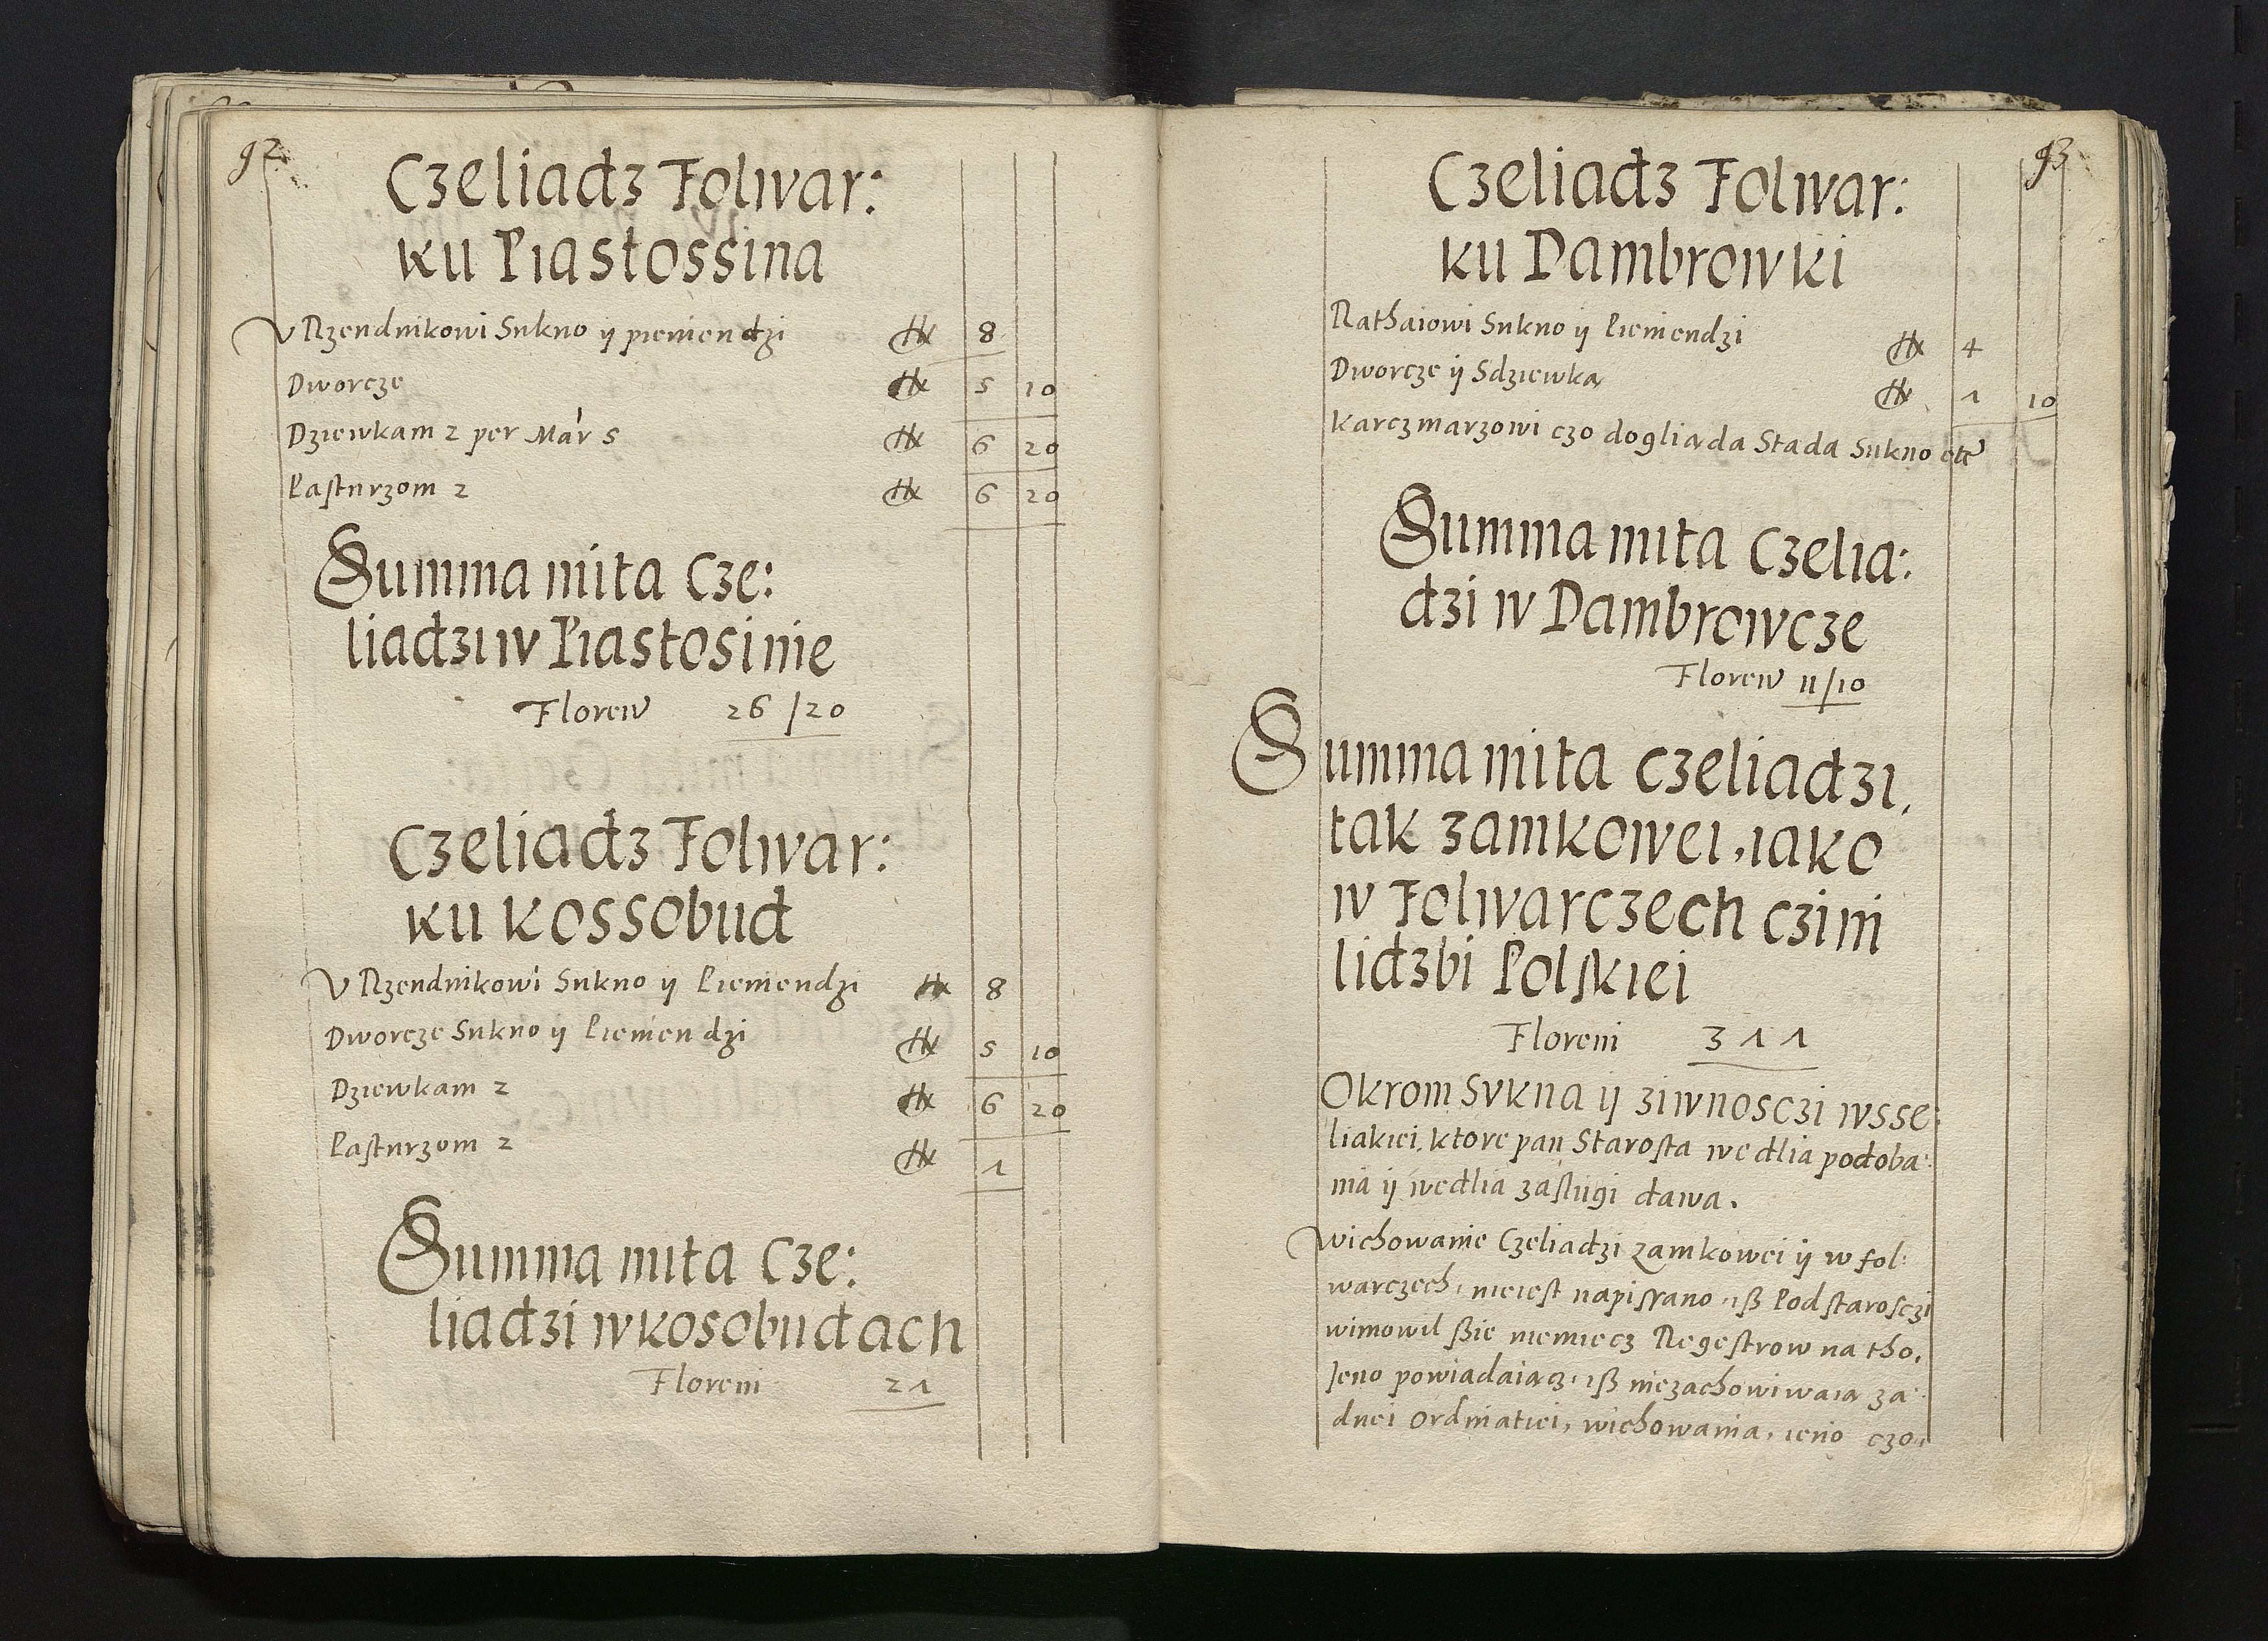 92
Czeliadz Folwar:
ku Piastossina
VRzendnikowi Sukno ÿ pieniendzi fl 8
Dworcze fl 5 10
Dziewkam 2 per Mar 5 fl 6 20
Pasturzom 2 fl 6 20
Summa mita Cze:
liadzi w Piastosinie
Floren 26/20
Czeliadz Folwar:
ku Kossobud
VRzendnikowi Sukno ÿ Pieniendzi fl 8
Dworcze Sukno ÿ Pieniendzi fl 5 10
Dziewkam 2 fl 6 20
Pasturzom 2 fl 1
Summa mita Cze:
liadzi w kosobudach
Floreni 21
93
Czeliadz Folwar:
ku Dambrowki
Rathaiowi Sukno ÿ Pieniendzi fl 4
Dworcze ÿ Sdziewka fl 1 10
Karczmarzowi czo doglia da Stada Sukno etc
Summa mita Czelia:
dzi w Dambrowcze
Floren 11/10
Summa mita czeliadzi,
tak zamkowei, iako
w Folwarczech czini
lidzbi Polskiei
Floreni 311
Okrom Sukna ÿ ziwnosczi wsse:
liakiei, ktore pan Starosta wedlia podoba:
nia ÿ wedlia zaslugi dawa.
Wichowanie Czeliadzi zamkowei ÿ w fol:
warczech, nieiest napissano, iß Podstarosczi
wimowil ßie niemiecz Regestrow na tho,
Jeno powiadaiacz, iß niezachowiwaia za:
dnei ordinatiei, wichowania, ieno czo,